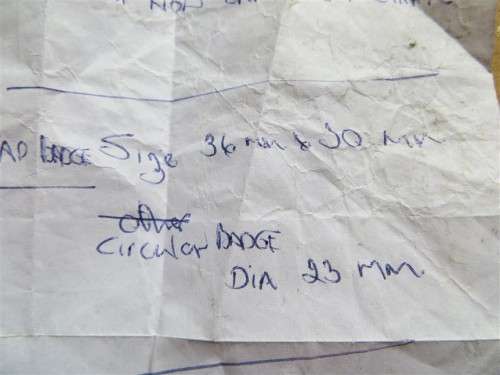 AD BADGE Size 36 mm x 30 mm
other
Circular BADGE
DIA 23 mm